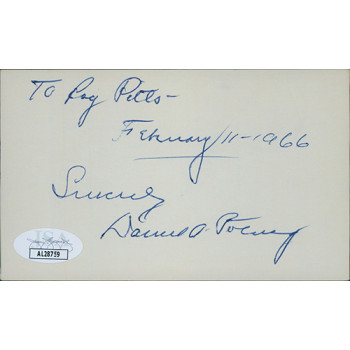 To Roy Pitts-
February 11-1966
Sincerely
Daniel A. Poling
JSA
AL28739